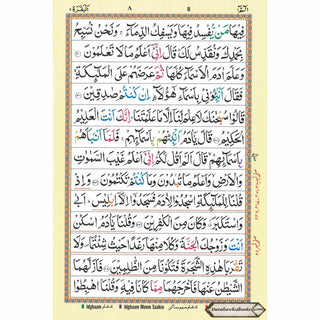 البقرة ٨ الٓمٓ
فِيۡهَا مَنۡ يُّفۡسِدُ فِيۡهَا وَيَسۡفِكُ الدِّمَآءَ ۚ وَنَحۡنُ نُسَبِّحُ
بِحَمۡدِكَ وَنُقَدِّسُ لَكَ ؕ قَالَ اِنِّىۡۤ اَعۡلَمُ مَا لَا تَعۡلَمُوۡنَ
وَعَلَّمَ اٰدَمَ الۡاَسۡمَآءَ كُلَّهَا ثُمَّ عَرَضَهُمۡ عَلَى الۡمَلٰٓٮِٕكَةِ
فَقَالَ اَنۡۢبِـُٔوۡنِىۡ بِاَسۡمَآءِ هٰٓؤُلَآءِ اِنۡ كُنۡتُمۡ صٰدِقِيۡنَ
قَالُوۡا سُبۡحٰنَكَ لَا عِلۡمَ لَنَآ اِلَّا مَا عَلَّمۡتَنَا ؕ اِنَّكَ اَنۡتَ الۡعَلِيۡمُ
الۡحَكِيۡمُ قَالَ يٰٓاٰدَمُ اَنۡۢبِئۡهُمۡ بِاَسۡمَآٮِٕهِمۡ ۚ فَلَمَّآ اَنۡۢبَاَهُمۡ
بِاَسۡمَآٮِٕهِمۡ ۙ قَالَ اَلَمۡ اَقُلْ لَّكُمۡ اِنِّىۡٓ اَعۡلَمُ غَيۡبَ السَّمٰوٰتِ
وَالۡاَرۡضِ ۙ وَاَعۡلَمُ مَا تُبۡدُوۡنَ وَمَا كُنۡتُمۡ تَكۡتُمُوۡنَ وَاِذۡ
قُلۡنَا لِلۡمَلٰٓٮِٕكَةِ اسۡجُدُوۡا لِاٰدَمَ فَسَجَدُوۡٓا اِلَّآ اِبۡلِيۡسَ ؕ اَبٰى
وَاسۡتَكۡبَرَ ۫ وَكَانَ مِنَ الۡكٰفِرِيۡنَ وَقُلۡنَا يٰٓاٰدَمُ اسۡكُنۡ
اَنۡتَ وَزَوۡجُكَ الۡجَنَّةَ وَكُلَا مِنۡهَا رَغَدًا حَيۡثُ شِئۡتُمَا ۪ وَلَا
تَقۡرَبَا هٰذِهِ الشَّجَرَةَ فَتَكُوۡنَا مِنَ الظّٰلِمِيۡنَ فَاَزَلَّهُمَا
الشَّيۡطٰنُ عَنۡهَا فَاَخۡرَجَهُمَا مِمَّا كَانَا فِيۡهِ ۪ وَقُلۡنَا اهۡبِطُوۡا
Idghaam Idghaam Meem Saakin